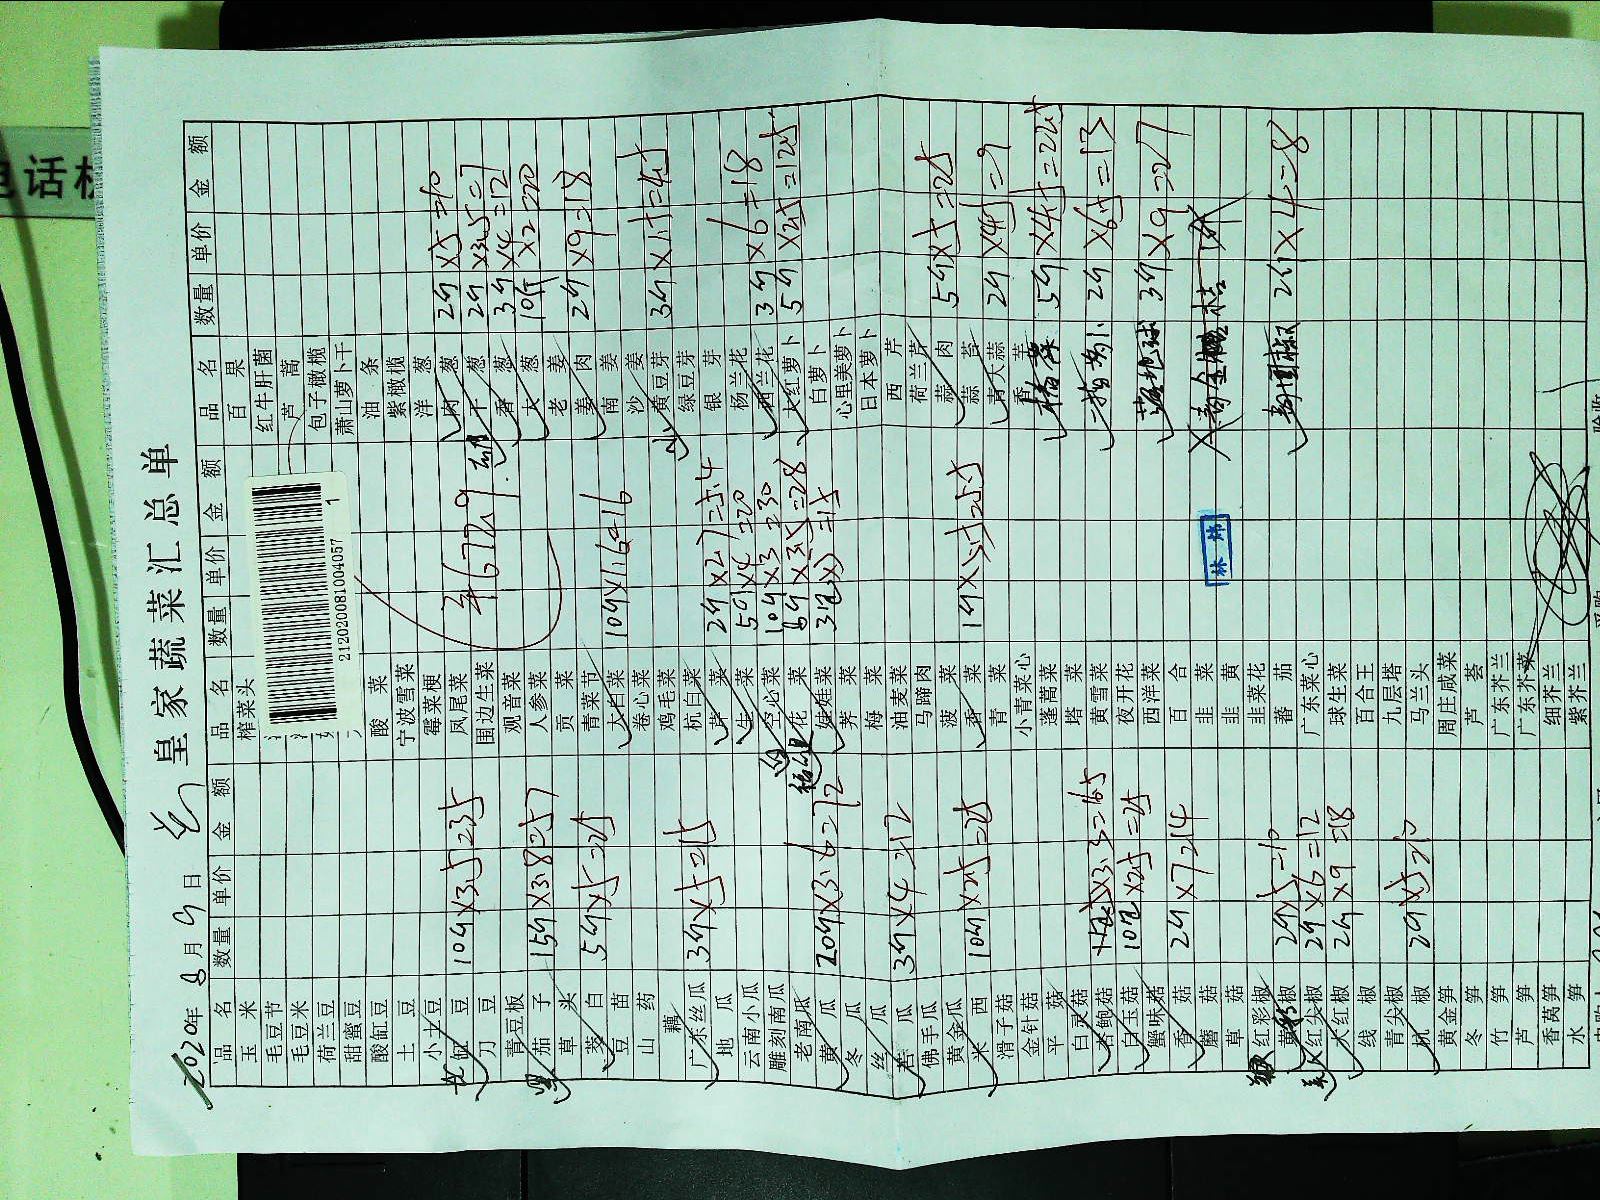 电话机
皇家蔬菜汇总单
2020年8月9日
品名 数量 单价 金额 品名 数量 单价 金额 品名 数量 单价 金额
玉米 榨菜头 百果
毛豆节 红牛肝菌
毛豆米 芦蒿
荷兰豆 包子橄榄
甜蜜豆 萧山萝卜干
酸缸豆 酸菜 油条
土豆 宁波雪菜 紫橄榄
小土豆 霉菜梗 洋葱
豇豆 10斤×3.5=35 凤尾菜 肉葱 2斤×5=10
刀豆 围边生菜 干葱 2斤×3.5=7
青豆板 观音菜 香葱 3斤×4=12
茄子 15斤×3.8=57 人参菜 大葱 10斤×2=20
草头 贡菜 老姜
茭白 5斤×5=25 青菜节 姜肉 2斤×9=18
豆苗 大白菜 10斤×1.6=16 南姜
山药 卷心菜 沙姜
藕 鸡毛菜 黄豆芽 3斤×1.5=4.5
广东丝瓜 3斤×5=15 杭白菜 绿豆芽
地瓜 芹菜 2斤×2.7=5.4 银芽
云南小瓜 生菜 5斤×4=20 杨兰花
雕刻南瓜 空心菜 10斤×3=30 西兰花 3斤×6=18
老南瓜 花菜 8斤×3.5=28 大红萝卜 5斤×2.5=12.5
黄瓜 20斤×3.6=72 娃娃菜 3包×5=15 白萝卜
冬瓜 荠菜 心里美萝卜
丝瓜 梅菜 日本萝卜
苦瓜 3斤×4=12 油麦菜 西芹
佛手瓜 马蹄肉 荷兰芹
黄金瓜 菠菜 蒜肉 5斤×5=25
米西 10斤×2.5=25 香菜 1斤×5.5=5.5 蒜苔
滑子菇 青菜 青大蒜 2斤×4.5=9
金针菇 小青菜心 香芋
平菇 蓬蒿菜 5斤×4.5=22.5
白灵菇 塔菜
杏鲍菇 ×3.3=16.5 黄雪菜 2斤×6.5=13
白玉菇 10包×2.5=25 夜开花
蟹味菇 西洋菜 3斤×9=27
香菇 2斤×7=14 百合
蘑菇 韭菜
草菇 韭黄
红彩椒 韭菜花
黄彩椒 2斤×5=10 蕃茄 2斤×4=8
红尖椒 2斤×6=12 广东菜心
大红椒 2斤×9=18 球生菜
线椒 百合王
青尖椒 九层塔
杭椒 2斤×5=10 马兰头
黄金笋 周庄咸菜
冬笋 芦荟
竹笋 广东芥兰
芦笋 广东芥菜
香莴笋 细芥兰
水笋 紫芥兰
2120200810040571
¥672.9
林炜